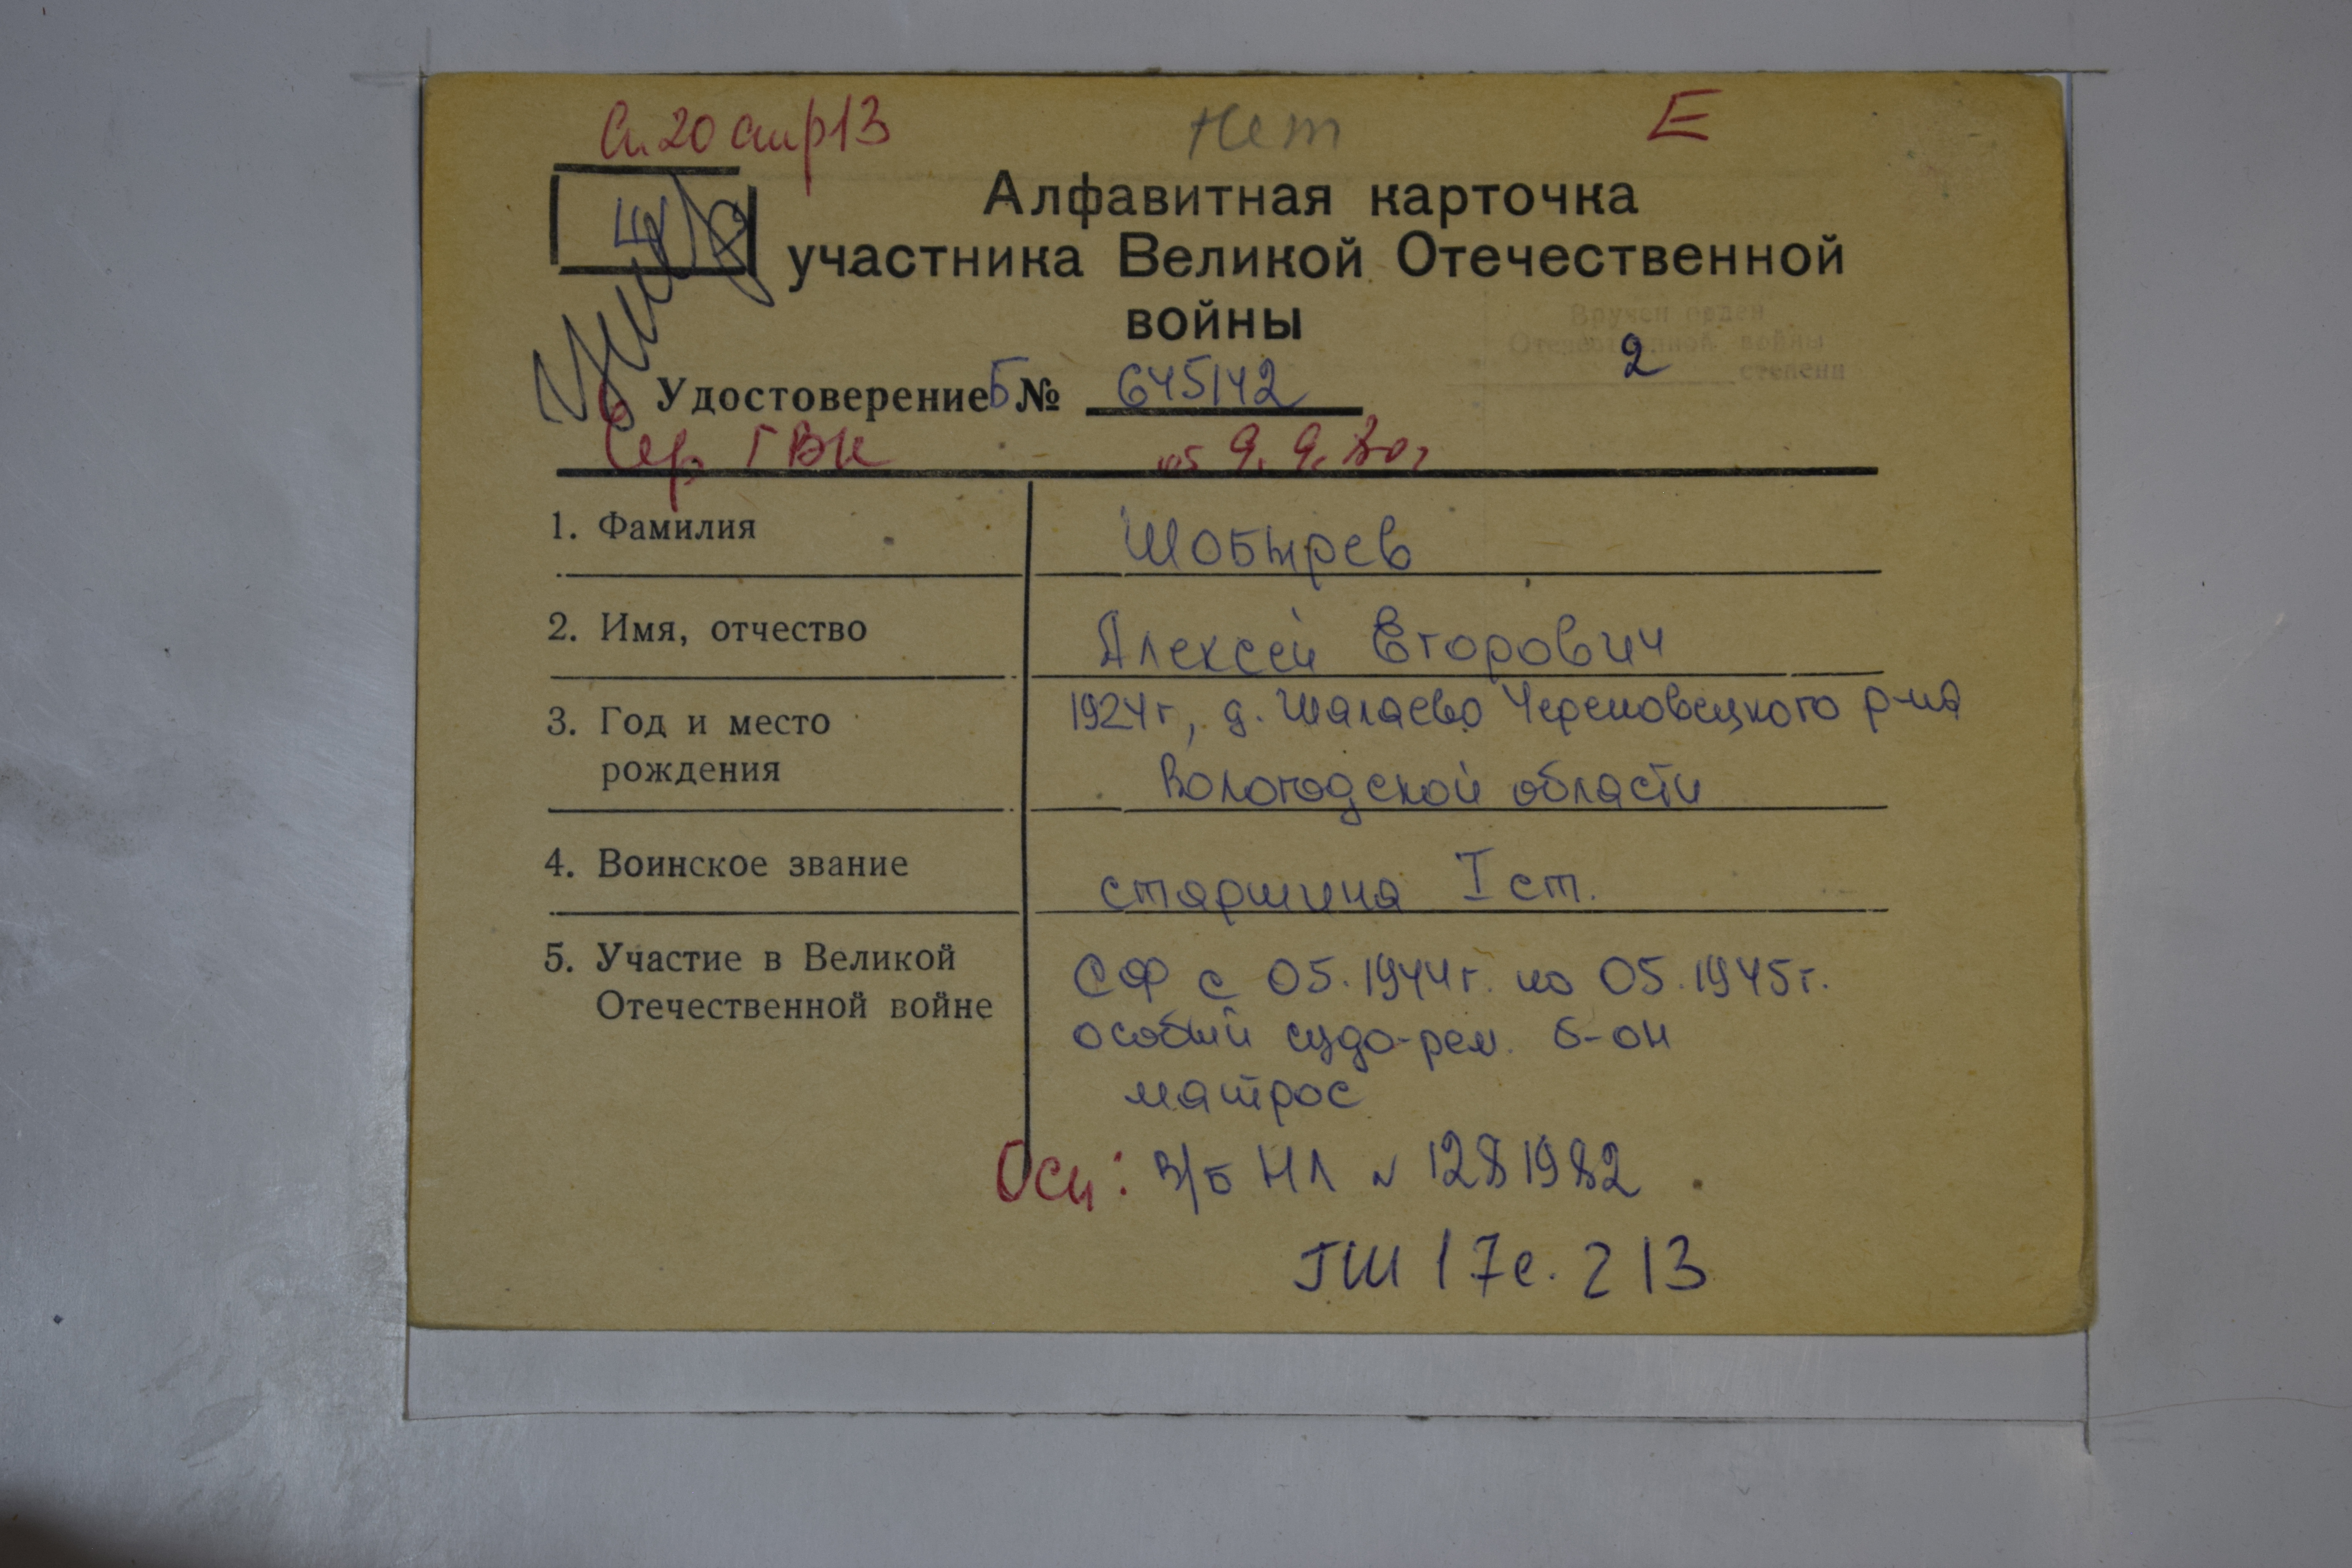 Сп. 20 стр 13
нет
Е
Алфавитная карточка
участника Великой Отечественной
войны
Вручен орден
Отечественной войны
2 степени
Удостоверение Б № 645142
Сер ГВК от 9.9.80г
1. Фамилия Шобырев
2. Имя, отчество Алексей Егорович
3. Год и место рождения 1924г, д. Шалаево Череповецкого р-на
Вологодской области
4. Воинское звание старшина I ст.
5. Участие в Великой Отечественной войне СФ с 05.1944г. по 05.1945г.
особый судо-рем. б-он
матрос
Осн: в/б НЛ № 1281982
ГШ 17с. 213